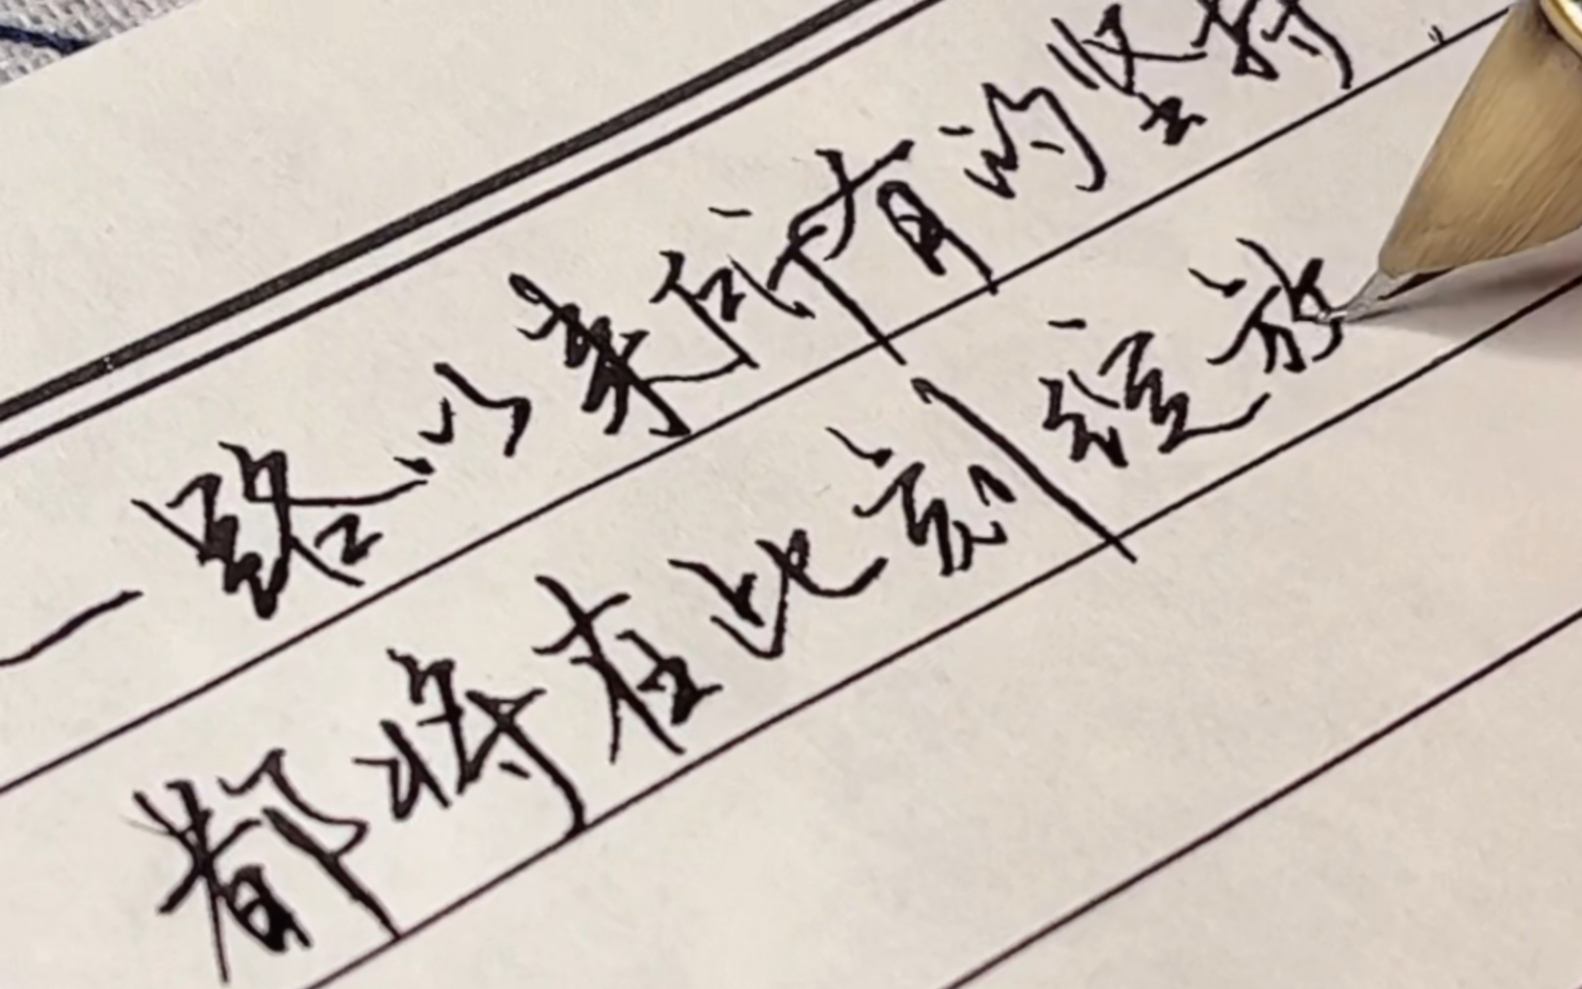 一路以来所有的坚持，
都将在此刻绽放